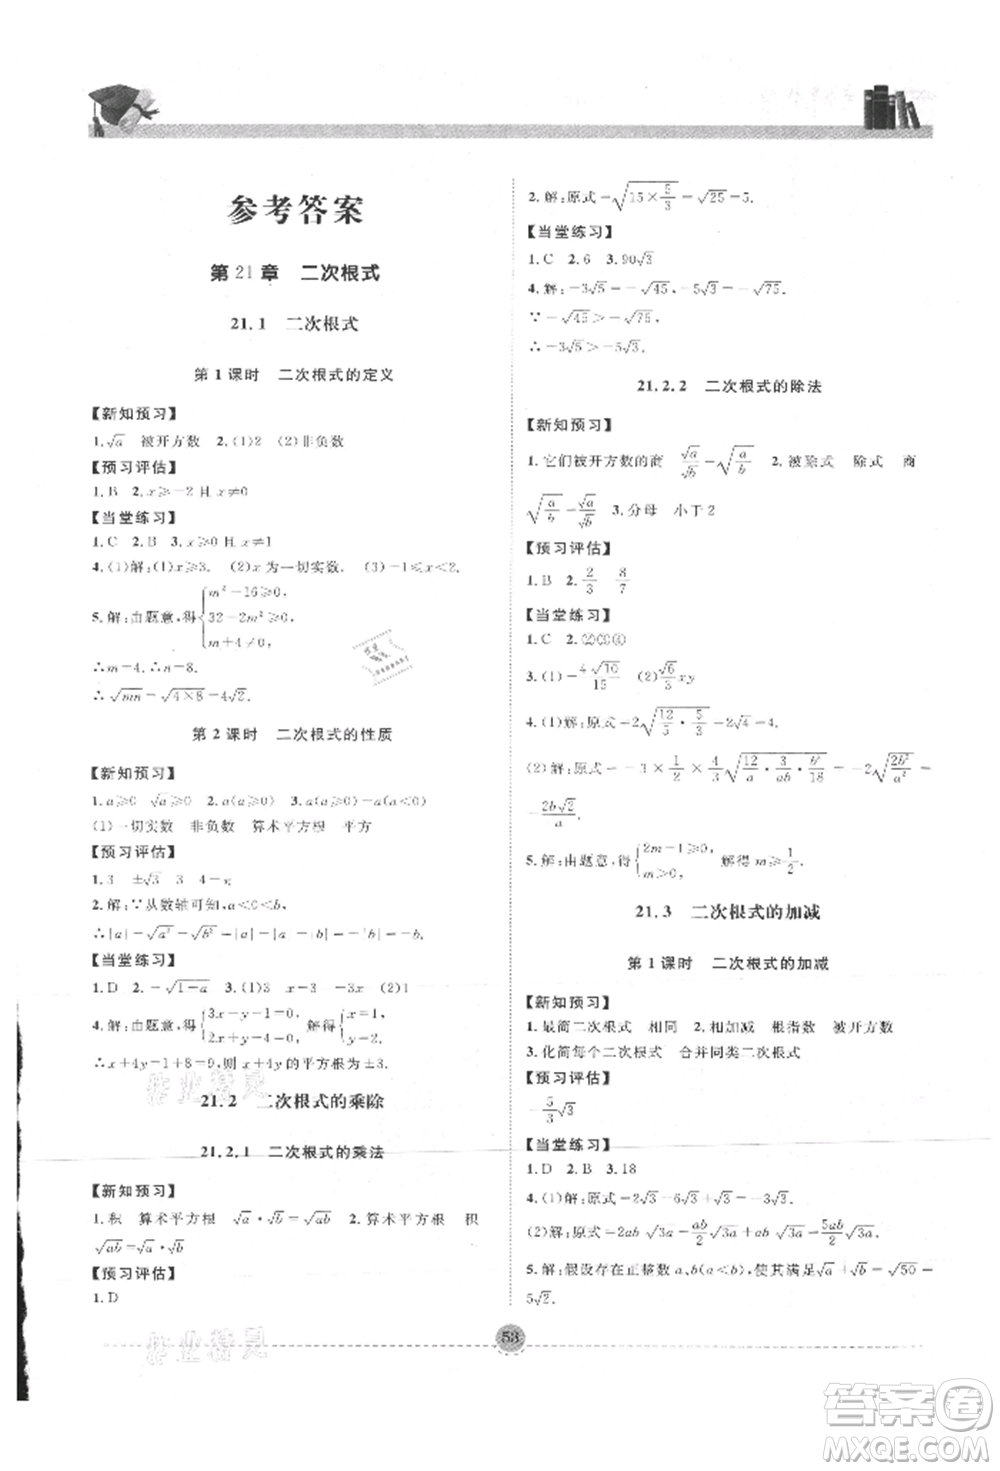 参考答案
第21章 二次根式
21.1 二次根式
第1课时 二次根式的定义
【新知预习】
1.√a 被开方数 2.(1)2 (2)非负数
【预习评估】
1.B 2.x≥-2且x≠0
【当堂练习】
1.C 2.B 3.x≥0且x≠1
4.(1)解:x≥3. (2)x为一切实数. (3)-1≤x≤2.
5.解:由题意,得{m²-16≥0, 32-2m²≥0, m+4≠0,
∴m=4.∴n=8.
∴√mn=√4×8=4√2.
第2课时 二次根式的性质
【新知预习】
1.a≥0 √a≥0 2.a(a≥0) 3.a(a≥0)-a(a≤0)
(1)一切实数 非负数 算术平方根 平方
【预习评估】
1.3 ±√3 3 4-π
2.解:∵从数轴可知,a<0<b,
∴|a|-√a²-√b²=|a|-|a|-|b|=-|b|=-b.
【当堂练习】
1.D 2.-√1-a 3.(1)3 x-3 (2)1
4.解:由题意,得{3x-y-1=0, 2x+y-4=0, 解得{x=1, y=2.
∴x+4y=1+8=9,则x+4y的平方根为±3.
21.2 二次根式的乘除
21.2.1 二次根式的乘法
【新知预习】
1.积 算术平方根 √a·√b=√ab 2.算术平方根 积
√ab=√a·√b
【预习评估】
1.D
2.解:原式=√15×5/3=√25=5.
【当堂练习】
1.C 2.6 3.90√3
4.解:-3√5=-√45,-5√3=-√75.
∵-√45>-√75,
∴-3√5>-5√3.
21.2.2 二次根式的除法
【新知预习】
1.它们被开方数的商 √a/√b=√a/b 2.被除式 除式 商
√a/b=√a/√b 3.分母 小于2
【预习评估】
1.B 2.2/3 8/7
【当堂练习】
1.C
3.(1)-4√10/15 (2)√6/3xy
4.(1)解:原式=2√12/3·5/3=
(2)解:原式=-3×1/2×4/3√12/a·3/ab·b³/18=-2√2b²/a²=
-2b√2/a.
5.解:由题意,得{2m-1≥0, 解得m≥1/2.
21.3 二次根式的加减
第1课时 二次根式的加减
【新知预习】
1.最简二次根式 相同 2.相加减 根指数 被开方数
3.化简每个二次根式 合并同类二次根式
【预习评估】
-5/3√3
【当堂练习】
1.D 2.B 3.18
4.(1)解:原式=2√3-6√3+√3=-3√3.
(2)解:原式=2ab√3a-ab/2√3a+ab√3a=5ab/2√3a.
5.解:假设存在正整数a,b(a<b),使其满足√a+√b=√50=
5√2.
53
作业精灵
作业精灵
答案圈
MXQE.COM